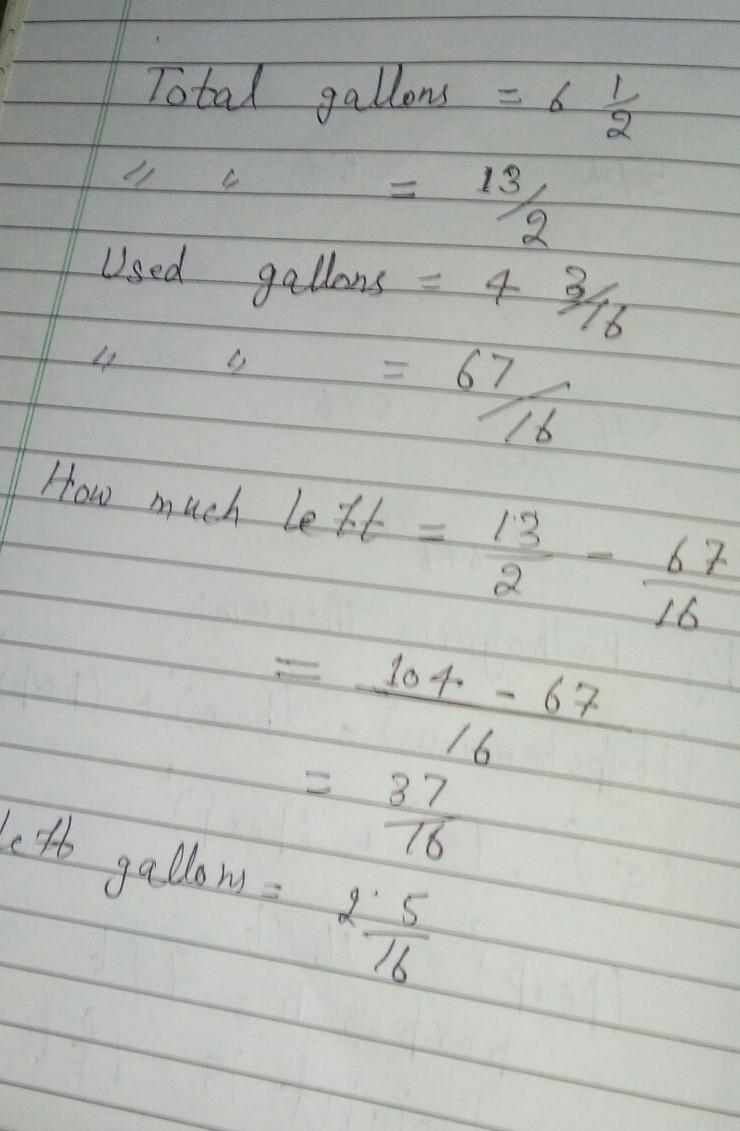 Total gallons = 6 1/2
" " = 13/2
Used gallons = 4 3/16
" " = 67/16
How much left = 13/2 - 67/16
= 104 - 67/16
= 37/16
left gallons = 2 5/16